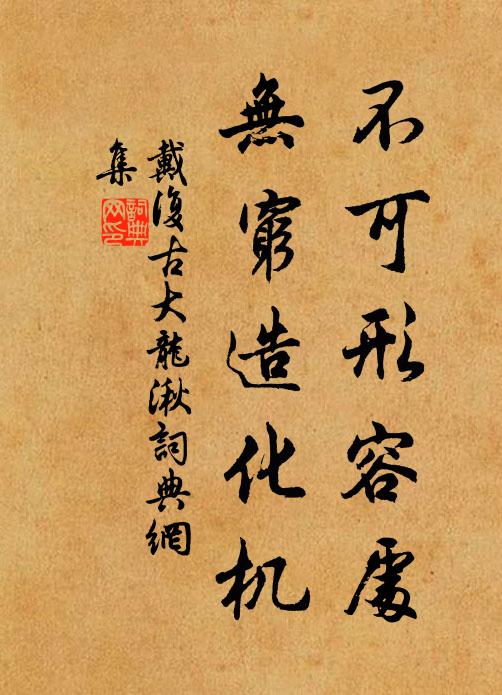 不可形容處
無窮造化机
戴復古大龍湫詞典網
集
詞典網印